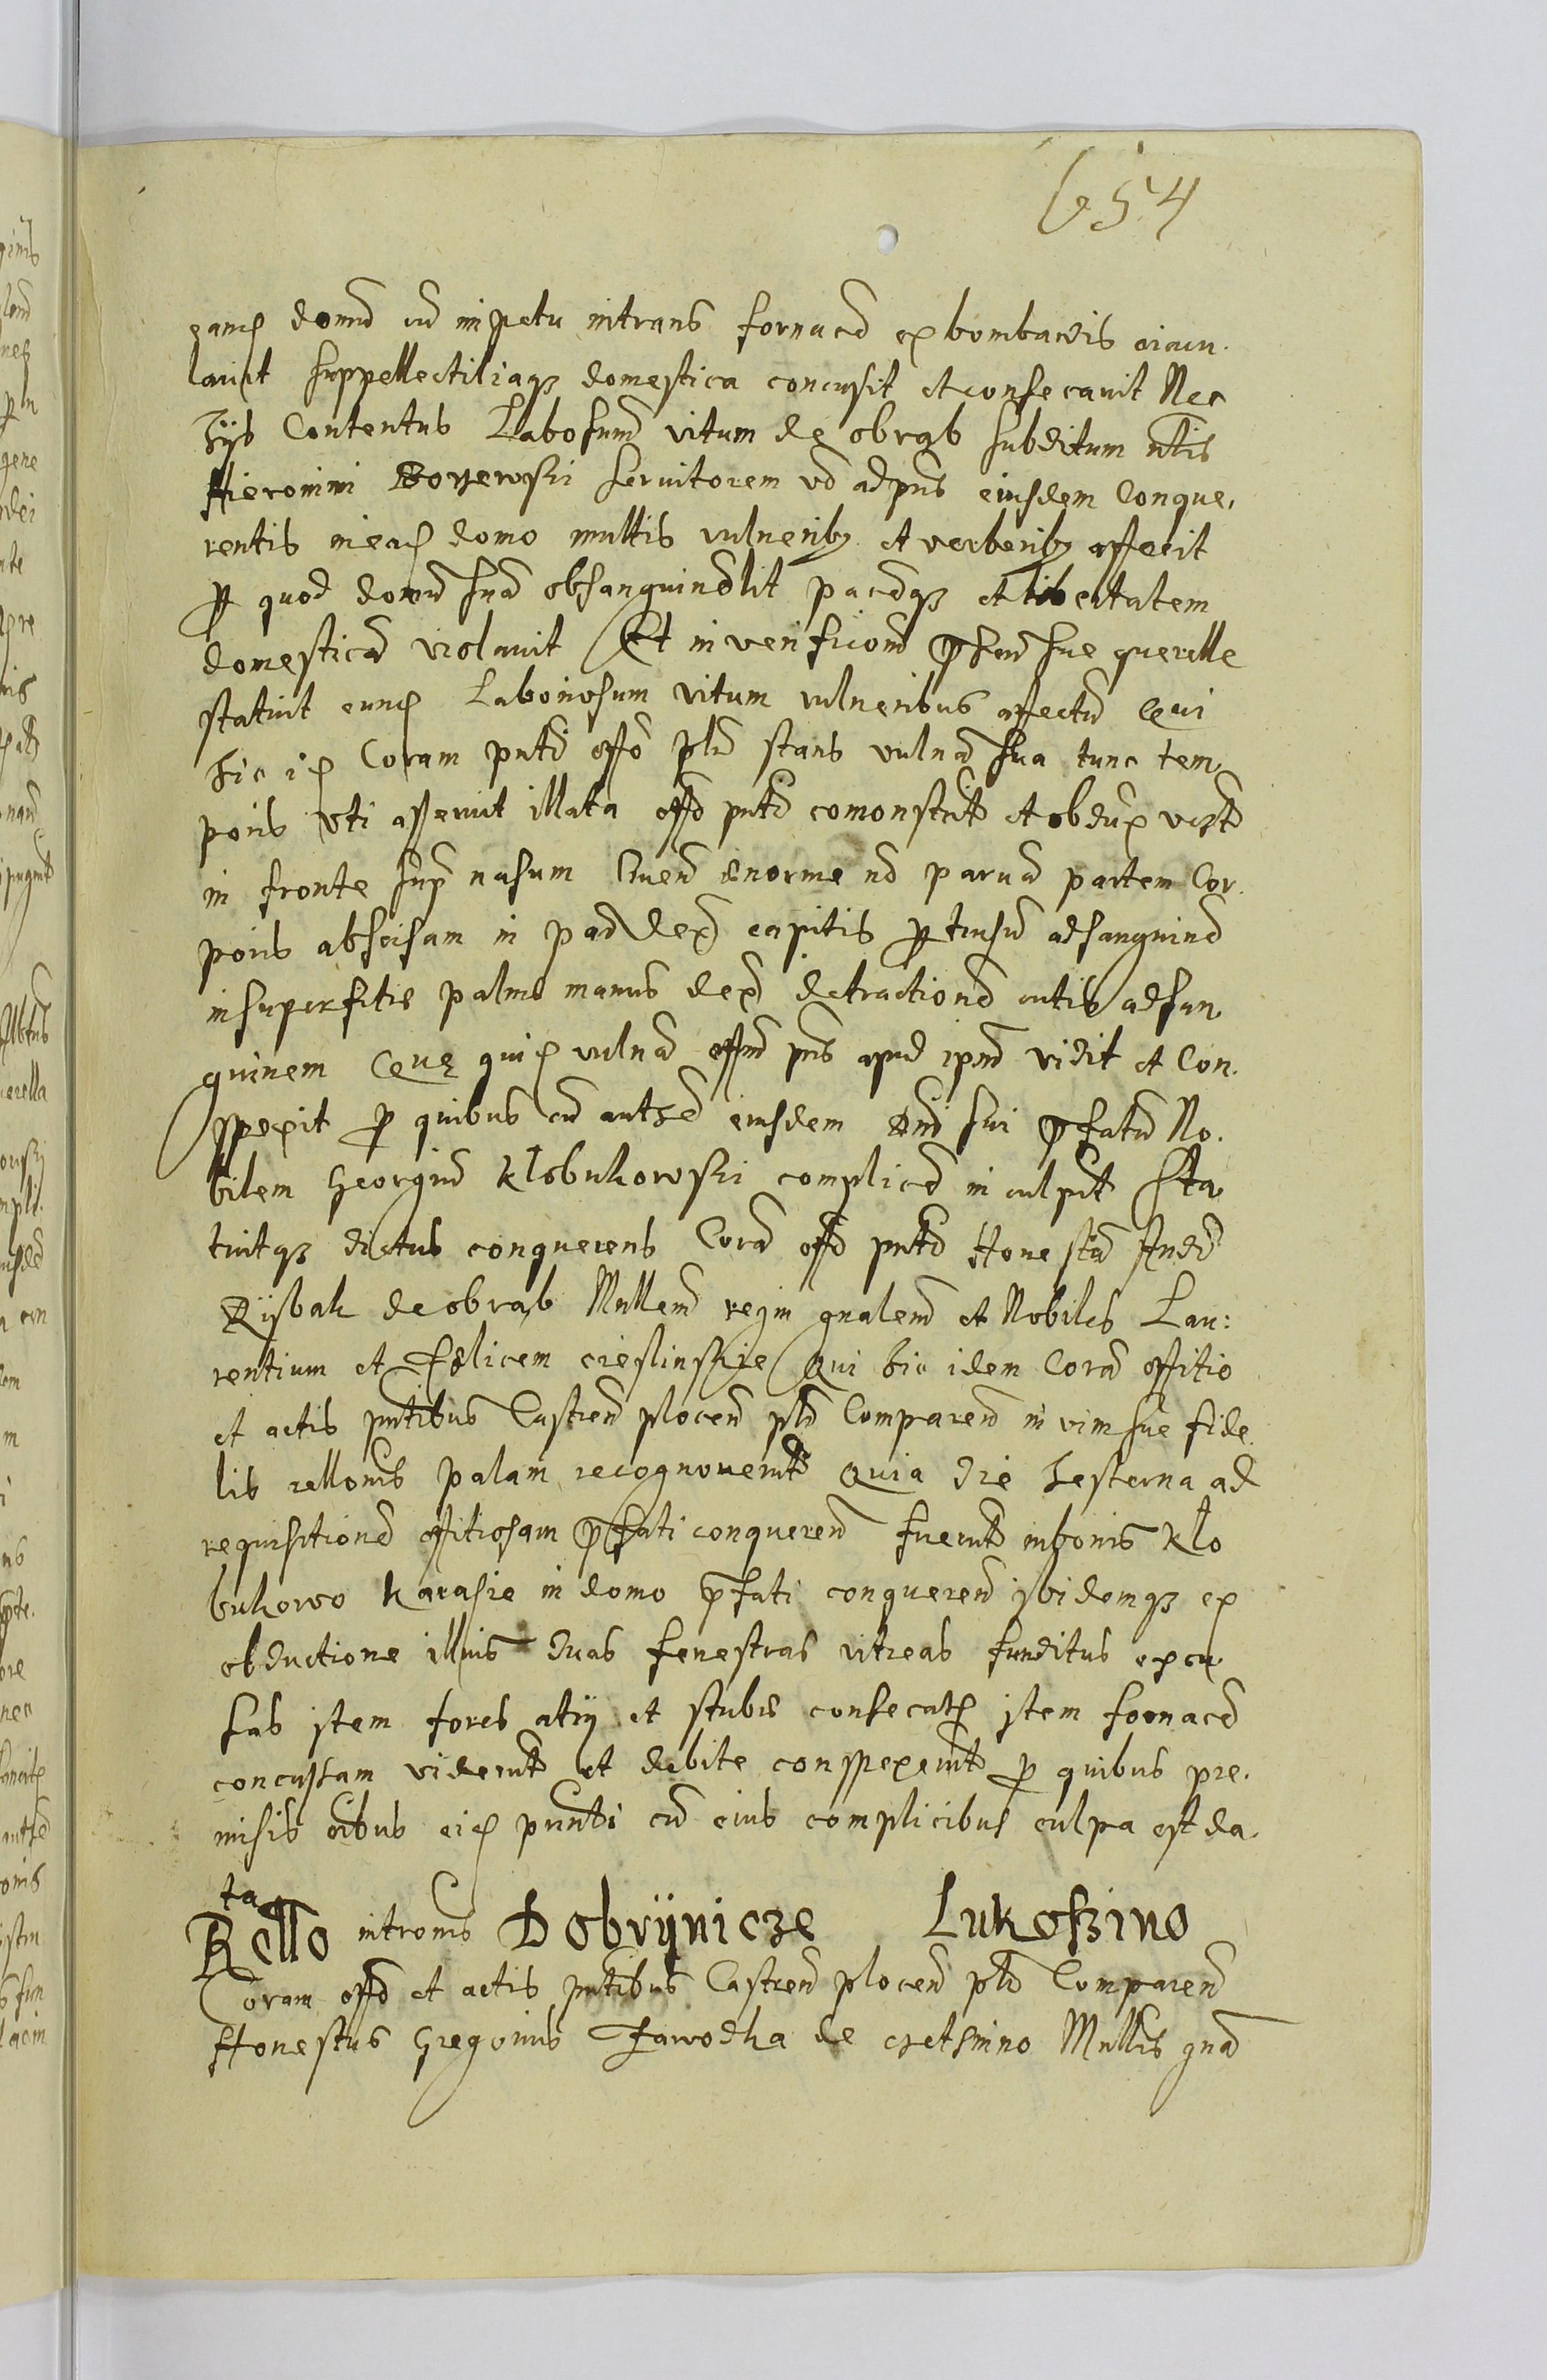 654
eand domu cu impetu intrans fornace ex bombardis eiacu
lavit suppellectiliaqз domestica concusit et consecavit Nec
hijs Contentus Labosum vitum de obrąb subditum nlis
Hieronimi Boyewski servitorem vo ad pns eiusdem Conque,
rentis in ead domo multis vulneribз et verberibз affecit
p quod domu sua obsanguinolit paceqз et libertatem
domestica violavit Et in verificone psen sue querelle
statuit eund Laboriosum vitum vulneribus affectu Qui
hic id Coram pnti offo plr stans vulnera sua tunc tem
poris uti asseruit illata offo pnti comonstrit et obdux viзt
in fronte sup nasum liven enorme no parva partem Cor.
poris abscisam in par dex capitis ptusu ad sanguine
in superfitie palme manus dex detractione cutis ad san
guinem Que quid vulnera offm pns apud ipm vidit et Con.
spexit p quibus cu autze eiusdem dni sui pfatu No.
bilem Georgiu Kłobukowski complice inculpit Sta
tuitqз dictus conquerens Cora offo pnti Honestu Andr
Rijbak de obrąb Mllem regni gnalem et Nobiles Lau:
rentium et Felicem cieslinskie Qui hic idem Cora offitio
et actis pntibus Castren plocen plr Comparen in vim sue fide
lis rellonis palam recognoverut Quia die hesterna ad
requisitione offitiosam pfati conqueren fuerut in bonis Kło
bukowo Karasie in domo pfati conqueren ibidemqз ex
obductione illius duas fenestras vitreas funditus excu
sas item fores atrij et stube consecatas item fornace
concussam viderut et debite conspexerut p quibus pre.
misis oibus eid pnnti cu eius complicibus culpa est da.
ta
Rello intromis Dobrijnicze Lukoszino
Coram offo et actis pntibus Castren plocen plr Comparen
Honestus Gregorius Zawodka de czetlinino Mllis gna